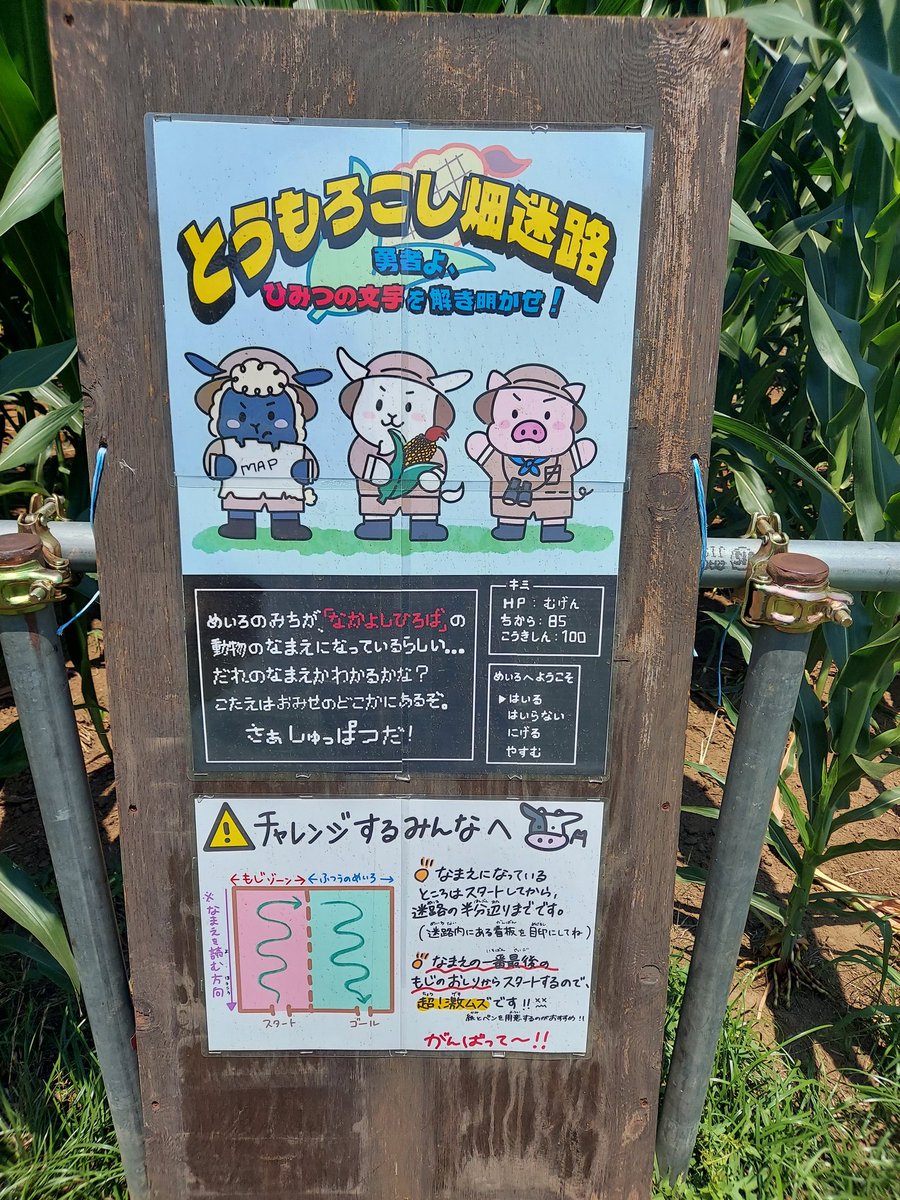 とうもろこし畑迷路
勇者よ、
ひみつの文字を解き明かせ!
MAP
めいろのみちが、「なかよしひろば」の
動物のなまえになっているらしい...
だれのなまえかわかるかな?
こたえはおみせのどこかにあるぞ。
さぁしゅっぱつだ!
キミ
HP:むげん
ちから:85
こうきしん:100
めいろへようこそ
▶はいる
はいらない
にげる
やすむ
チャレンジするみんなへ
←もじゾーン→←ふつうのめいろ→
※なまえを読む方向
スタート
ゴール
なまえになっている
ところはスタートしてから、
迷路の半分辺りまでです。
(迷路内にある看板を目印にしてね)
なまえの一番最後の
もじのおしりからスタートするので、
超!激ムズです!!
紙とペンを用意するのがおすすめ!!
がんばって〜!!